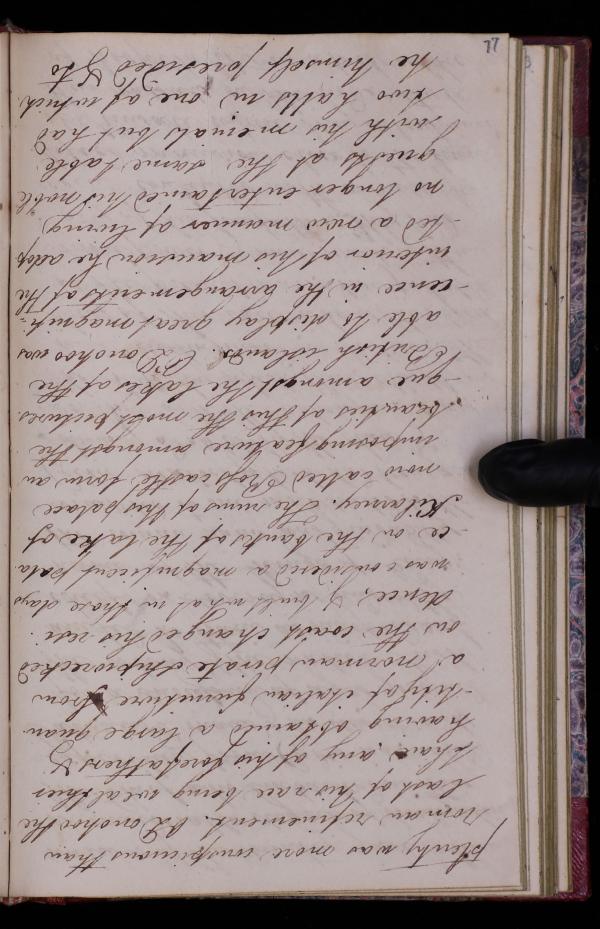 plenty was more conspicuous than
norman refinement. O'Donohoo the
last of his race being wealthier
than any of his forefathers &
having obtained a large quan
-tity of italian furniture from
a norman pirate shipwrecked
on the coast changed his resi
dence, & built what in those days
was considered a magnificent pala
-ce on the banks of the lake of
Kilarney. The ruins of this palace
now called Ross castle form an
imposing feature amongst the
beauties of this the most pictures
-que amongst the lakes of the
British islands. O'Donohoo was
able to display great magnifi=
-cence in the arrangements of the
interior of his mansion he adop
-ted a new manner of living
no longer entertained his noble
guests at the same table
with his menials but had
two halls in one of which
he himself presided & to
77